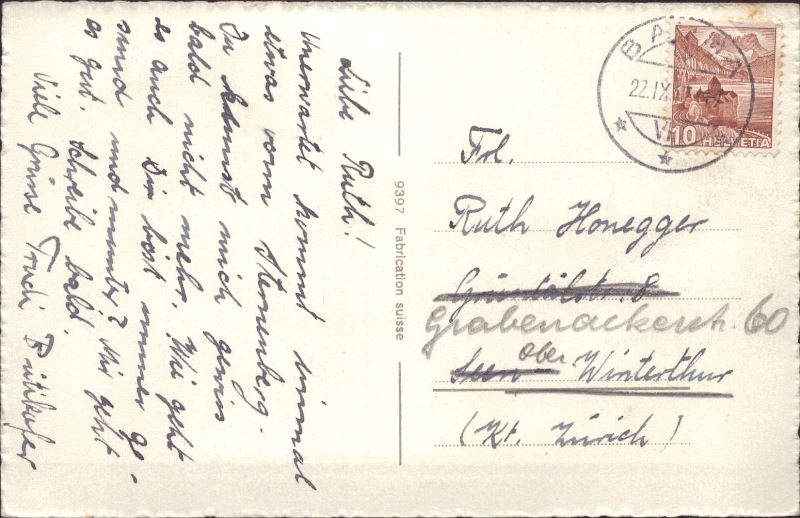 Liebe Ruth!
Unerwartet kommt einmal
etwas vom Sternenberg.
Du kannst mich gewiss
bald nicht mehr. Wie geht
es auch Dir bist immer ge-
sund und munter? Mir geht
es gut. Schreibe bald.
Viele Grüsse Trudi
9397 Fabrication suisse
BAUMA
22.IX.
10 HELVETIA
Frl.
Ruth Honegger
8
Grabenackerstr. 60
Seen ober Winterthur
(Kt. Zürich)